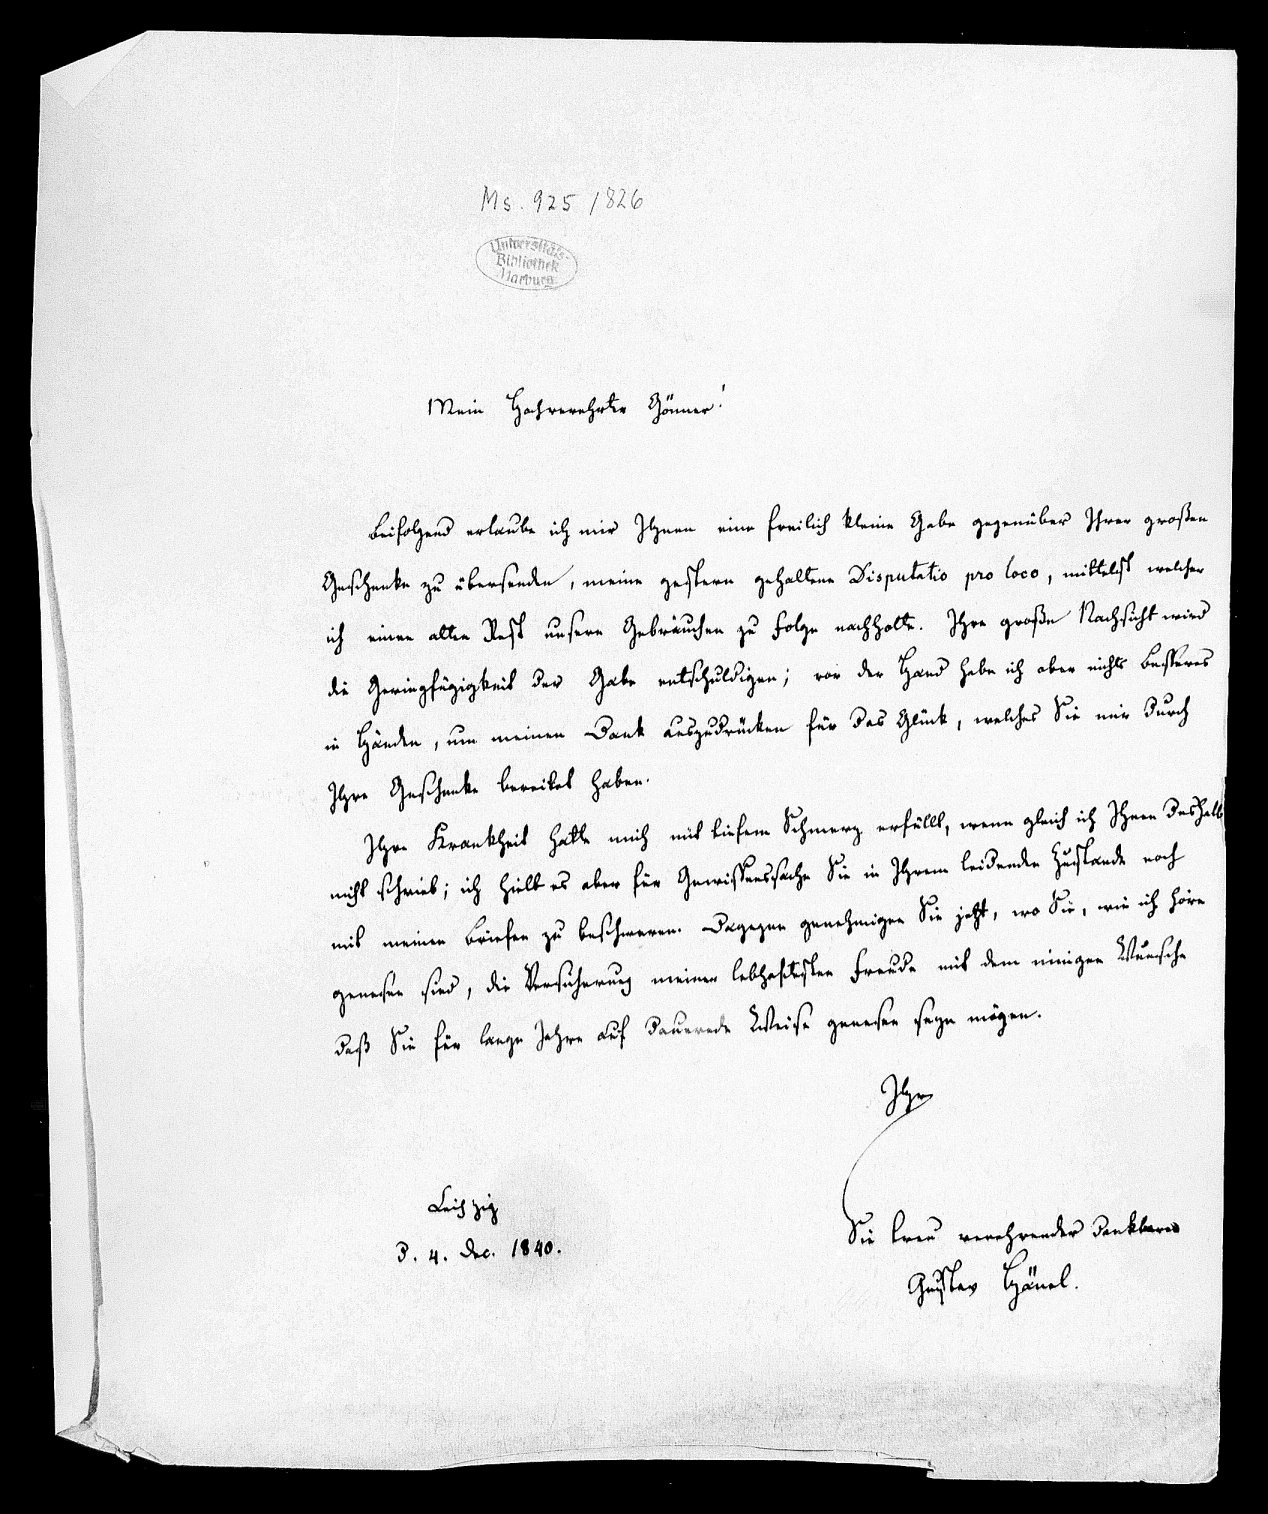 Ms. 925/826
Universitäts-
Bibliothek
Marburg
Mein Hochverehrter Gönner!
Beifolgend erlaube ich mir Ihnen eine freilich kleine Gabe gegenüber Ihrer großen
Geschenke zu übersenden, meine gestern gehaltene Disputatio pro loco, mittelst welcher
ich einen alten Rest unsern Gebräuchen zu Folge nachholte. Ihre große Nachsicht wird
die Geringfügigkeit der Gabe entschuldigen; vor der Hand habe ich aber nichts besseres
in Händen, um meinen Dank auszudrücken für das Glück, welches Sie mir durch
Ihre Geschenke bereitet haben.
Ihre Krankheit hatte mich mit tiefem Schmerz erfüllt, wenn gleich ich Ihnen deshalb
nicht schrieb; ich hielt es aber für Gewissenssache Sie in Ihrem leidenden Zustande noch
mit meinen Briefen zu beschweren. Dagegen genehmigen Sie jetzt, wo Sie, wie ich höre
genesen sind, die Versicherung meiner lebhaftesten Freude mit dem innigen Wunsche
daß Sie für lange Jahre auf dauernde Weise genesen seyn mögen.
Ihr
Leipzig
d. 4. Dec. 1840.
Sie treu verehrender dankbarer
Gustav Hänel.